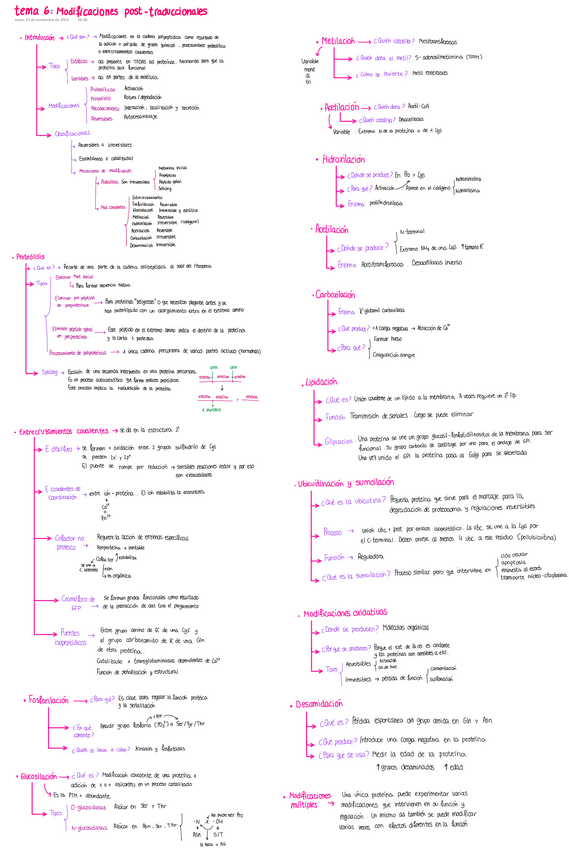 tema 6: Modificaciones post-traduccionales
· Introducción → ¿Qué son? → Modificaciones en la cadena polipeptídica como resultado de
la adición o pérdida de grupos químicos, procesamientos proteolítico
o entrecruzamientos covalentes
Tipos
Estáticas → aa presente en TODAS las proteínas. Necesarias para que la
proteína sea funcional
Variables → aa en partes de la molécula.
Modificaciones
Proteolíticas Activación
Proteólisis Rotura / degradación
Reconocimiento Interacción, localización y secreción
Reversibles
Clasificaciones
Reversibles o irreversibles
Espontáneas o catalizadas
Mecanismo de modificación
Proteólisis Son irreversibles
Metionina inicial
Propéptido
Péptido señal
Splicing
Mod. covalentes
Entrecruzamiento
Fosforilación Reversible
Glucosilación Irreversible y estático
Metilación Reversible
Hidroxilación Irreversible (colágeno)
Acetilación Reversible
Carboxilación Irreversible
Desamidación Irreversible
· Proteólisis
¿Qué es? → Recorte de una parte de la cadena polipeptídica al salir del ribosoma.
Tipos
Eliminar Met inicial
Para formar secuencia madura
Eliminar pro-péptido
en proproteínas → Para proteínas "peligrosas" o que necesitan plegarse antes y se
han sintetizado con un alargamiento extra en el extremo amino
Eliminar péptido señal
en preproteínas → Este péptido en el extremo amino indica el destino de la proteína
y la corta la proteasa
Procesamiento de poliproteínas → 1 única cadena precursora de varias partes activas (hormonas)
Splicing → Escisión de una secuencia interpuesta en una proteína precursora.
Es un proceso autocatalítico que forma enlaces peptídicos.
Este proceso implica la maduración de la proteína.
corta corta
exteína inteína exteína
exteína exteína + inteína
e. peptídico
· Entrecruzamientos covalentes → se da en la estructura 2ª
E disulfuro → se forman x oxidación entre 2 grupos sulfhidrilo de Cys
se pierden 2e⁻ y 2p⁺
El puente se rompe por reducción → sensibles reacciones redox y por eso
son extracelulares
E covalentes de
coordinación → entre ion - proteína. El ion estabiliza la estructura.
Ca²⁺
Zn²⁺
Cofactor no
proteico → Requiere la acción de enzimas específicas.
Apoproteína → inestable
Cofactor estabiliza
ion
m. orgánica
Cromóforo de
GFP → Se forman grupos funcionales como resultado
de la interacción de aas tras el plegamiento
Puentes
isopeptídicos → Entre grupo amino de R de una Lys y
el grupo carboxamido de R de una Gln
de otra proteína.
Catalizado x transglutaminasas dependientes de Ca²⁺
Función de señalización y estructural
· Fosforilación → ¿Para qué? Es clave para regular la función proteica
y la señalización
¿En qué
consiste? → Añadir grupo fosforilo (PO₃²⁻) a Ser/Tyr/Thr
+ATP
¿Quién lo lleva a cabo? Kinasas y fosfatasas
· Glucosilación → ¿Qué es? Modificación covalente de una proteína x
adición de 1 o + azúcares en un proceso catalizado
Es la PTM + abundante
Tipos
O-glucosidasas Azúcar en Ser y Thr
N-glucosidasas Azúcar en Asn, Ser, Thr
no puede ser Pro
-N X -OH
Asn S/T
· Metilación → ¿Quién cataliza? Metiltransferasas
¿Quién dona el metil? S-adenosilmetionina (SAM)
¿Cómo se revierte? Metil esterasas
Variable
mono
di
tri
· Acetilación → ¿Quién dona? Acetil-CoA
¿Quién cataliza? Desacetilasas
Variable Extremo N de la proteína o de 1 Lys
· Hidroxilación
¿Dónde se produce? En Pro y Lys
¿Para qué? Activación Aparece en el colágeno
hidroxiprolina
hidroxilisina
Enzima prolilhidroxilasa
· Acetilación
¿Dónde se produce?
N-terminal
Extremo NH₃ de una Lys
Enzima Acetiltransferasas Desacetilasas inverso
· Carboxilación
Enzima γ-glutamil carboxilasa
¿Qué produce? ↑ carga negativa → Atracción de Ca²⁺
¿Para qué?
Formar hueso
Coagulación sangre
· Lipidación
¿Qué es? Unión covalente de un lípido a la membrana. A veces requiere un 2º lip.
Función Transmisión de señales. Luego se puede eliminar
Glipiación Una proteína se une un grupo glucosil-fosfatidilinositol de la membrana para ser
funcional. Su grupo carboxilo se sustituye por uno para el anclaje de GPI.
Una vez unido el GPI la proteína pasa al Golgi para ser secretada.
· Ubicuitinación y sumoilación
¿Qué es la ubicuitina? Pequeña proteína que sirve para el marcaje para la
degradación de proteasoma y regulaciones reversibles
Proceso → Unión Ubc + prot. por enlace isopeptídico. La Ubc. se une a la Lys por
el C-terminal. Deben unirse al menos 4 Ubc. a ese residuo (poliubicuitina)
Función → Reguladora
¿Qué es la sumoilación? Proceso similar pero que interviene en
ciclo celular
apoptosis
respuesta al estrés
transporte núcleo-citoplasma
· Modificaciones oxidativas
¿Dónde se producen? Moléculas orgánicas
¿Por qué se producen? Porque el ext. de la cel. es oxidante
y las proteínas son sensibles a ello.
Tipos
Reversibles
Irreversibles → pérdida de función
carbonilación
sulfonación
· Desamidación
¿Qué es? Pérdida espontánea del grupo amida en Gln y Asn
¿Qué produce? Introduce una carga negativa en la proteína.
¿Para qué se usa? Medir la edad de la proteína.
↑ grupos desaminados ↑ edad
· Modificaciones
múltiples → Una única proteína puede experimentar varias
modificaciones que intervienen en su función y
regulación. Un mismo aa también se puede modificar
varias veces con efectos diferentes en la función